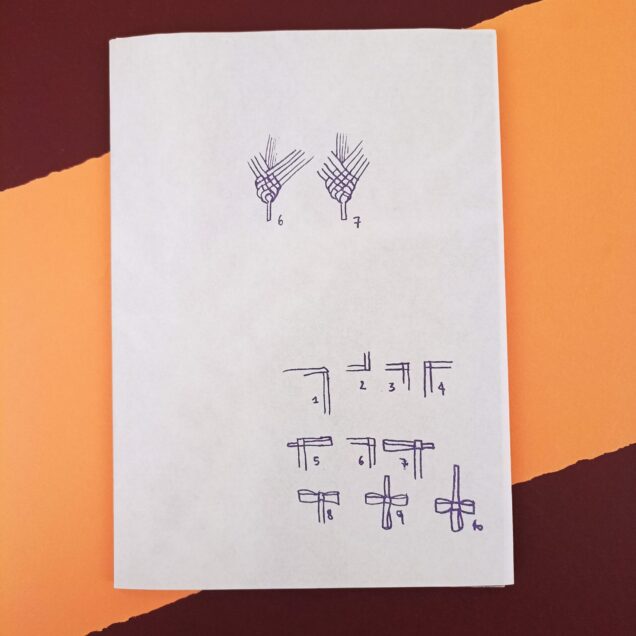 6 7
1 2 3 4
5 6 7
8 9 10